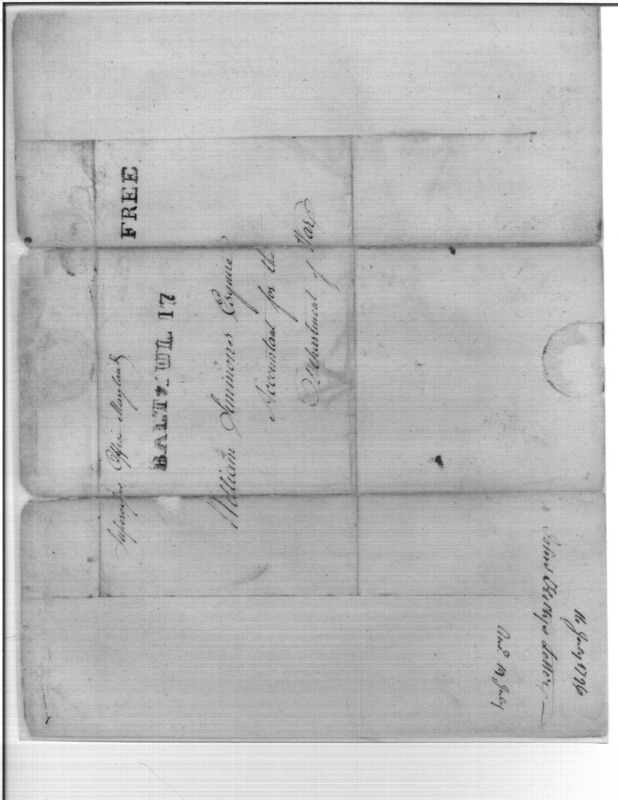 Supervisors Office Maryland
FREE
BALT. JUL 17
William Simmons Esquire
Accountant for the
Department of War
16 July 1796
Letter
Ansd 19 July